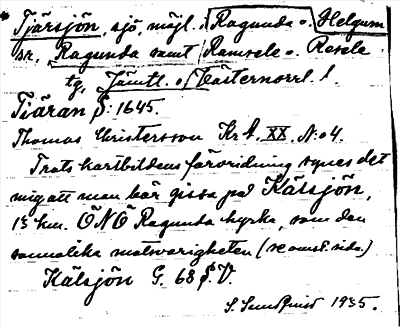 * Tjärsjön, sjö, möjl. i Ragunda o. Helgum
sr, Ragunda samt Ramsele o. Resele
tg, Jämtl. o. Västernorrl. l.
Tiäran S: 1645.
Thomas Christersson Krt. XX. N:o 4.
Trots kartbildens förvridning synes det
mig att man bör gissa på Kälsjön,
13 km. ÖNÖ Ragunda kyrka, som den
sannolika motsvarigheten (se omst. sida.)
Kälsjön G. 68 S.V.
S. Sundqvist 1935.